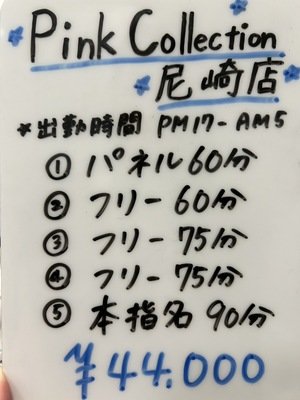 Pink Collection
尼崎店
*出勤時間 PM17-AM5
① パネル 60分
② フリー 60分
③ フリー 75分
④ フリー 75分
⑤ 本指名 90分
¥44.000